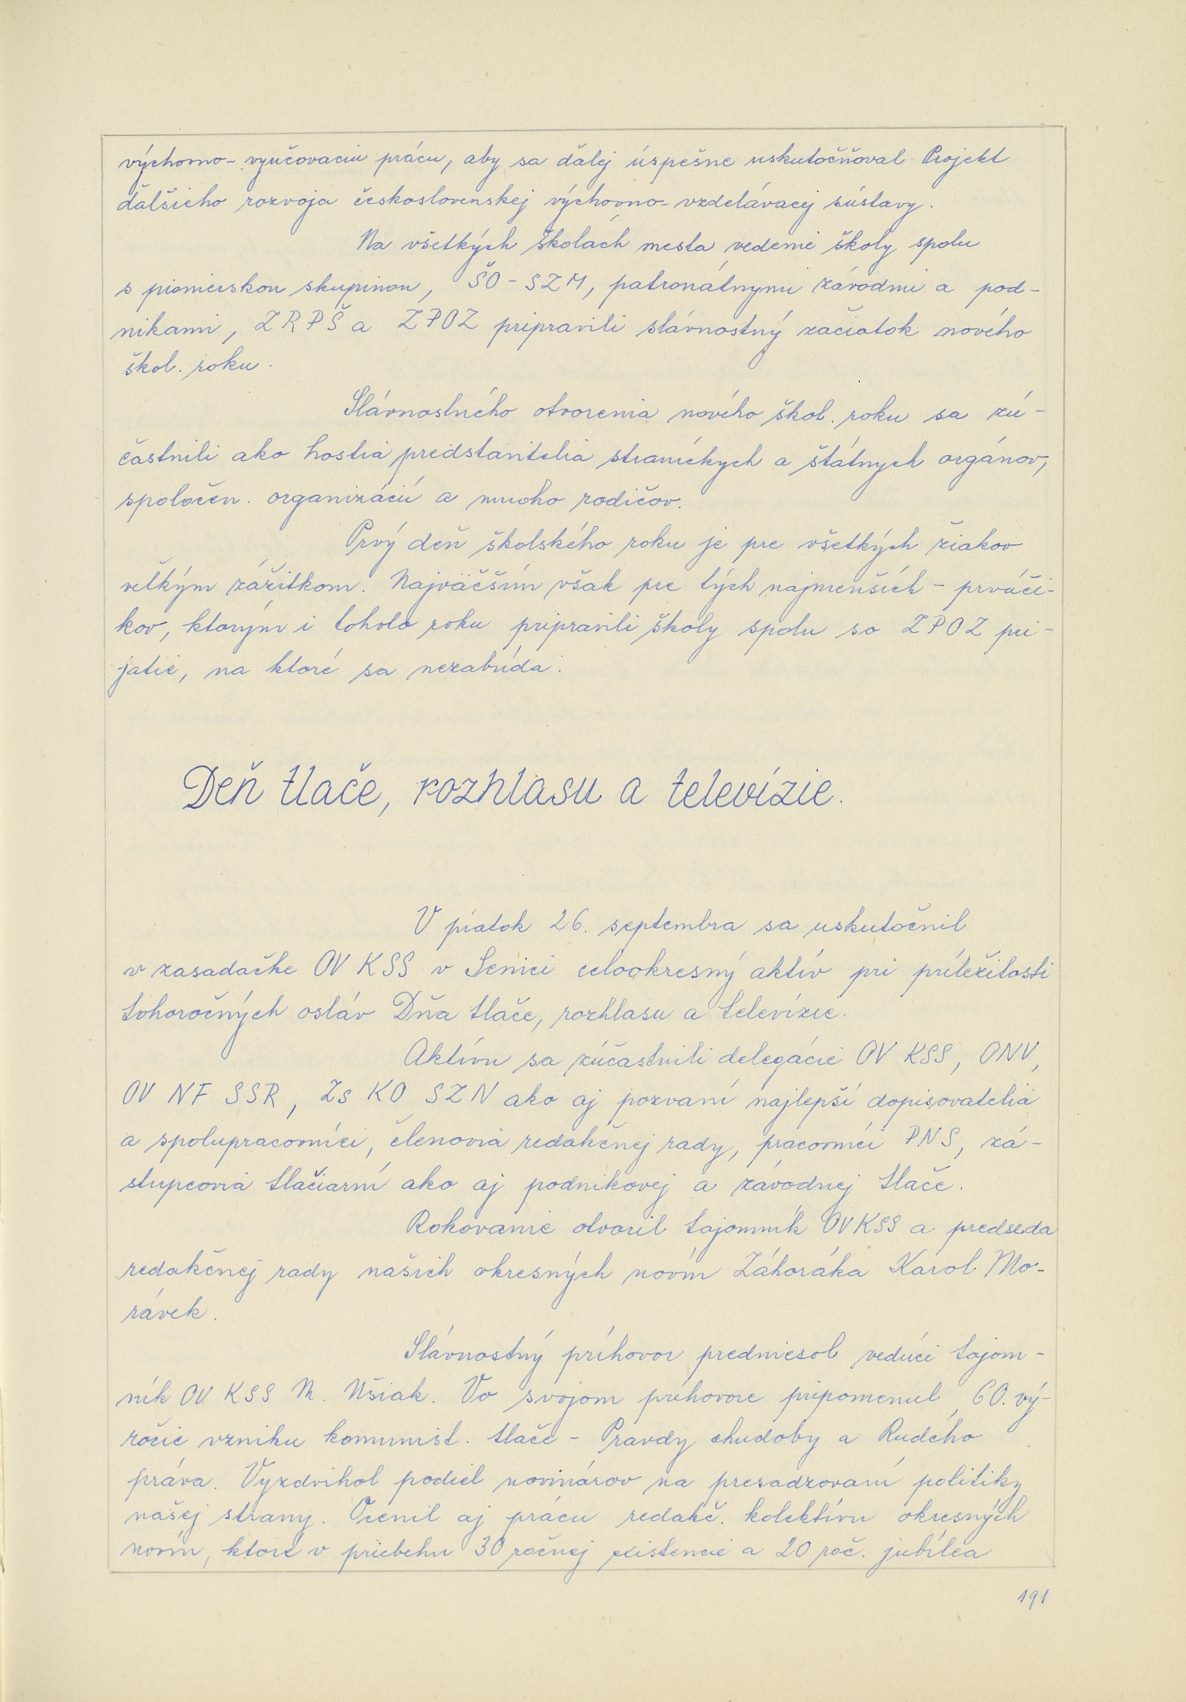 výchovno-vyučovaciu prácu, aby sa ďalej úspešne uskutočňoval Projekt
ďalšieho rozvoja československej výchovno-vzdelávacej sústavy.
Na všetkých školách mesta vedenie školy spolu
s pionierskou skupinou, ŠO-SZM, patronátnymi závodmi a pod-
nikami, ZRPŠ a ZPOZ pripravili slávnostný začiatok nového
škol. roku.
Slávnostného otvorenia nového škol. roku sa zú-
častnili ako hostia predstavitelia straníckych a štátnych orgánov,
spoločen. organizácií a mnoho rodičov.
Prvý deň školského roku je pre všetkých žiakov
veľkým zážitkom. Najväčším však pre tých najmenších - prváči-
kov, ktorým i tohoto roku pripravili školy spolu so ZPOZ pri-
jatie, na ktoré sa nezabúda.
Deň tlače, rozhlasu a televízie.
V piatok 26. septembra sa uskutočnil
v zasadačke OV KSS v Senici celookresný aktív pri príležitosti
tohoročných osláv Dňa tlače, rozhlasu a televízie.
Aktívu sa zúčastnili delegácie OV KSS, ONV,
OV NF SSR, Zs KO SZN ako aj pozvaní najlepší dopisovatelia
a spolupracovníci, členovia redakčnej rady, pracovníci PNS, zá-
stupcovia tlačiarní ako aj podnikovej a závodnej tlače.
Rokovanie otvoril tajomník OV KSS a predseda
redakčnej rady našich okresných novín Záhoráka Karol Mo-
rávek.
Slávnostný príhovor predniesol vedúci tajom-
ník OV KSS M. Ušiak. Vo svojom príhovore pripomenul 60. vý-
ročie vzniku komunist. tlače - Pravdy chudoby a Rudého
práva. Vyzdvihol podiel novinárov na presadzovaní politiky
našej strany. Ocenil aj prácu redakč. kolektívu okresných
novín, ktoré v priebehu 30 ročnej existencie a 20 roč. jubilea
191